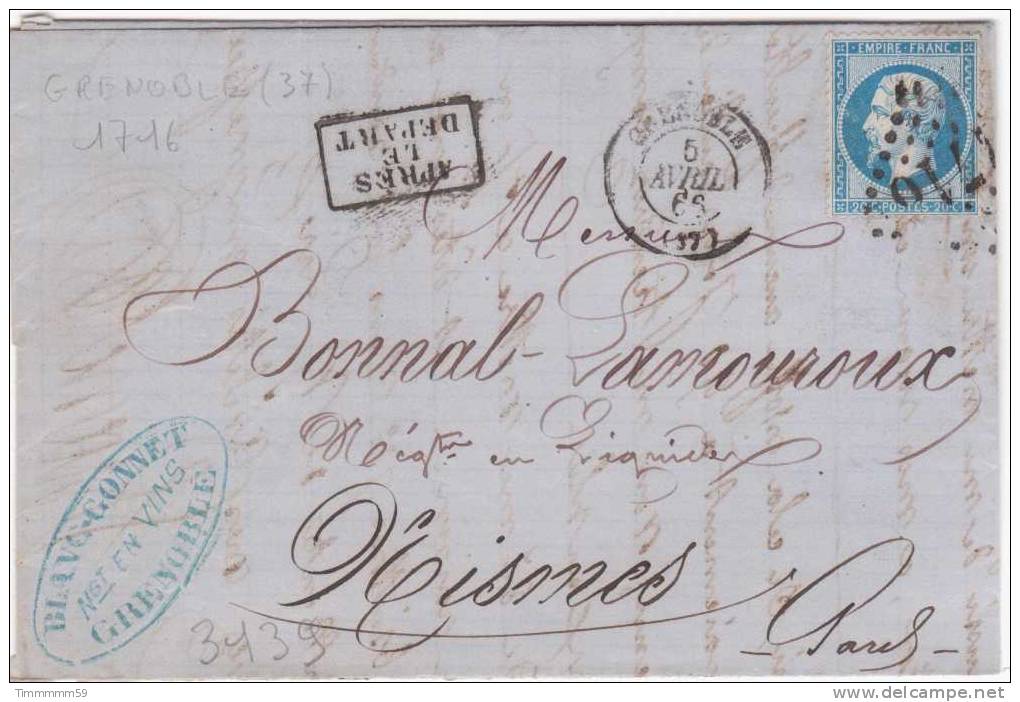 GRENOBLE (37)
1716
APRÈS
LE
DEPART
GRENOBLE
5
AVRIL
66
(37)
EMPIRE FRANC
20·C·POSTES·20·C
1716
Messieurs
Bonnal-Lamouroux
Négts en Liquides
Nismes
- Gard -
BLAVG-GONNET
NGT EN VINS
GRENOBLE
3439
Timmmmm59
delcampe.net